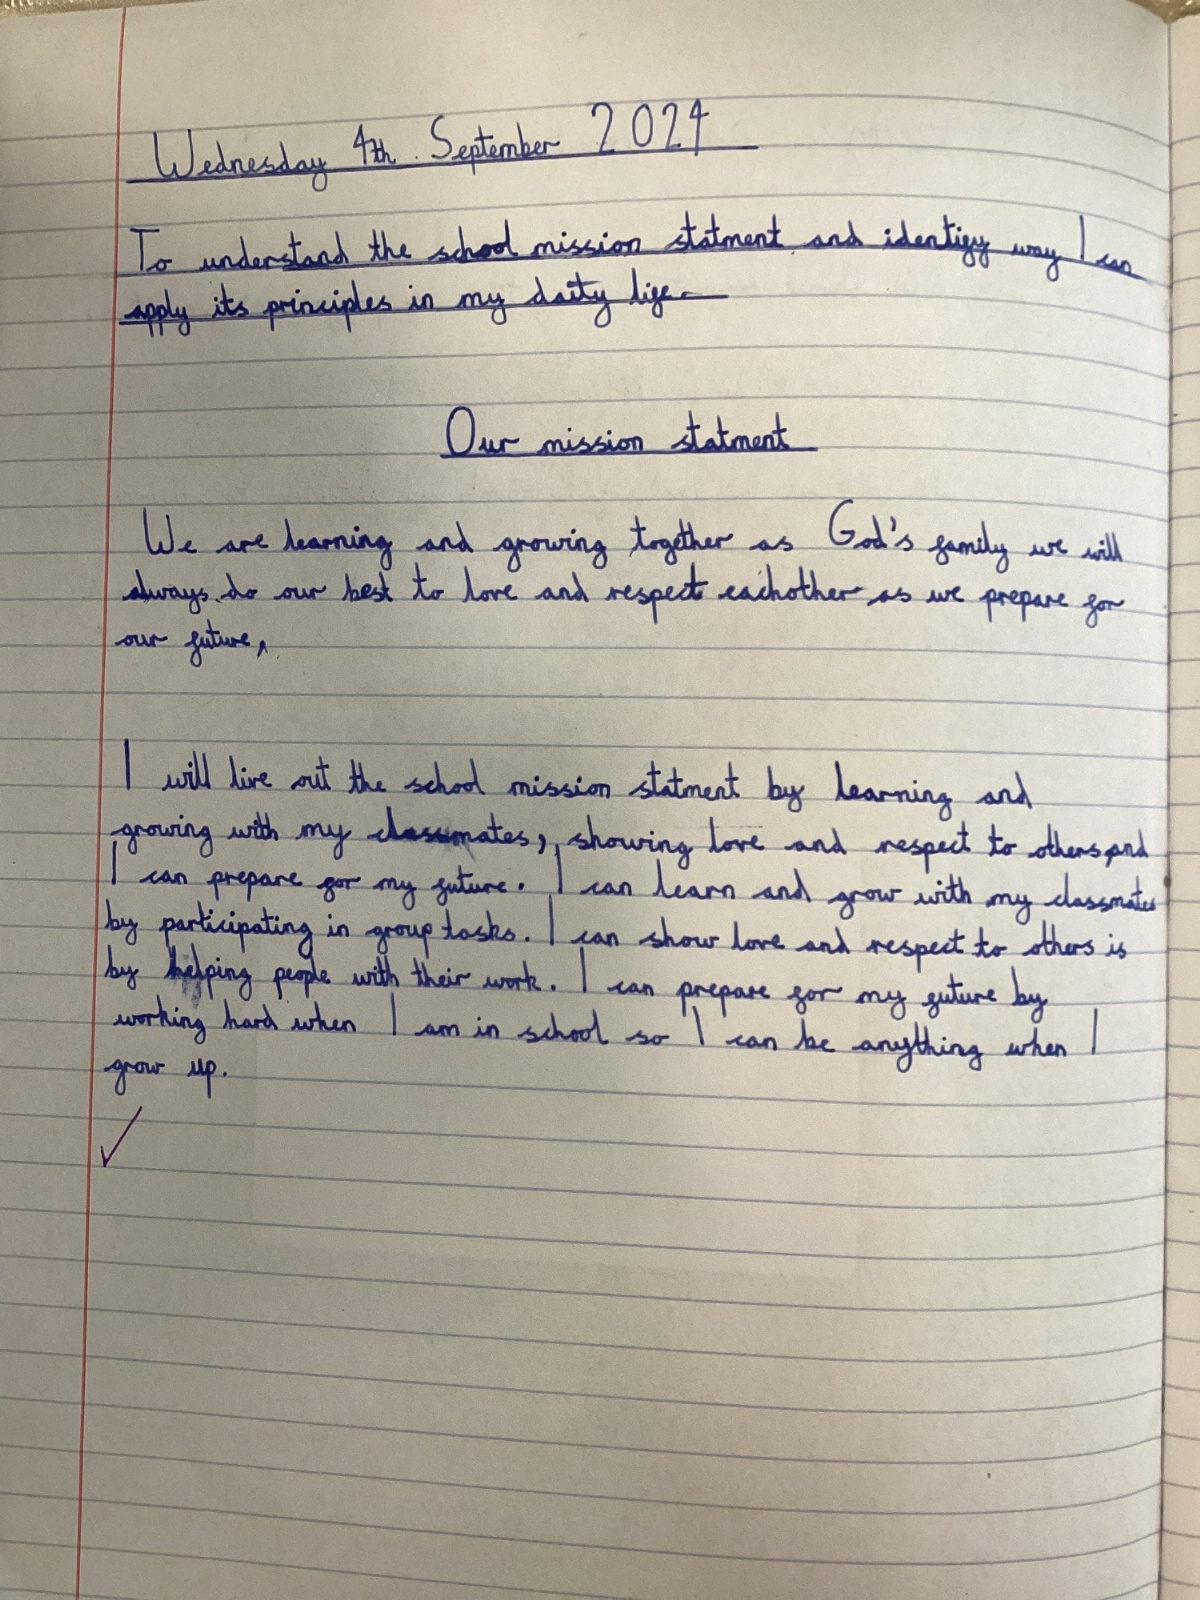 Wednesday 4th September 2024
To understand the school mission statment and identify way I can
apply its principles in my daity life.
Our mission statment
We are learning and growing together as God's family we will
always do our best to love and respect eachother as we prepare for
our future,
I will live out the school mission statment by learning and
growing with my classmates, showing love and respect to others and
I can prepare for my future. I can learn and grow with my classmates
by participating in group tasks. I can show love and respect to others is
by helping people with their work. I can prepare for my future by
working hard when I am in school so I can be anything when I
grow up.